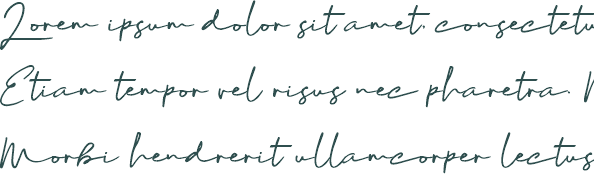 Lorem ipsum dolor sit amet, consectetu
Etiam tempor vel risus nec pharetra.
Morbi hendrerit ullamcorper lectus